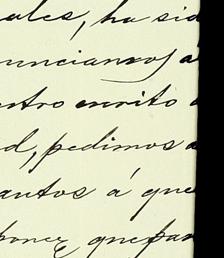 ales, ha sid
unciamos a
ntro escrito
d, pedimos a
autos á que
poner que par